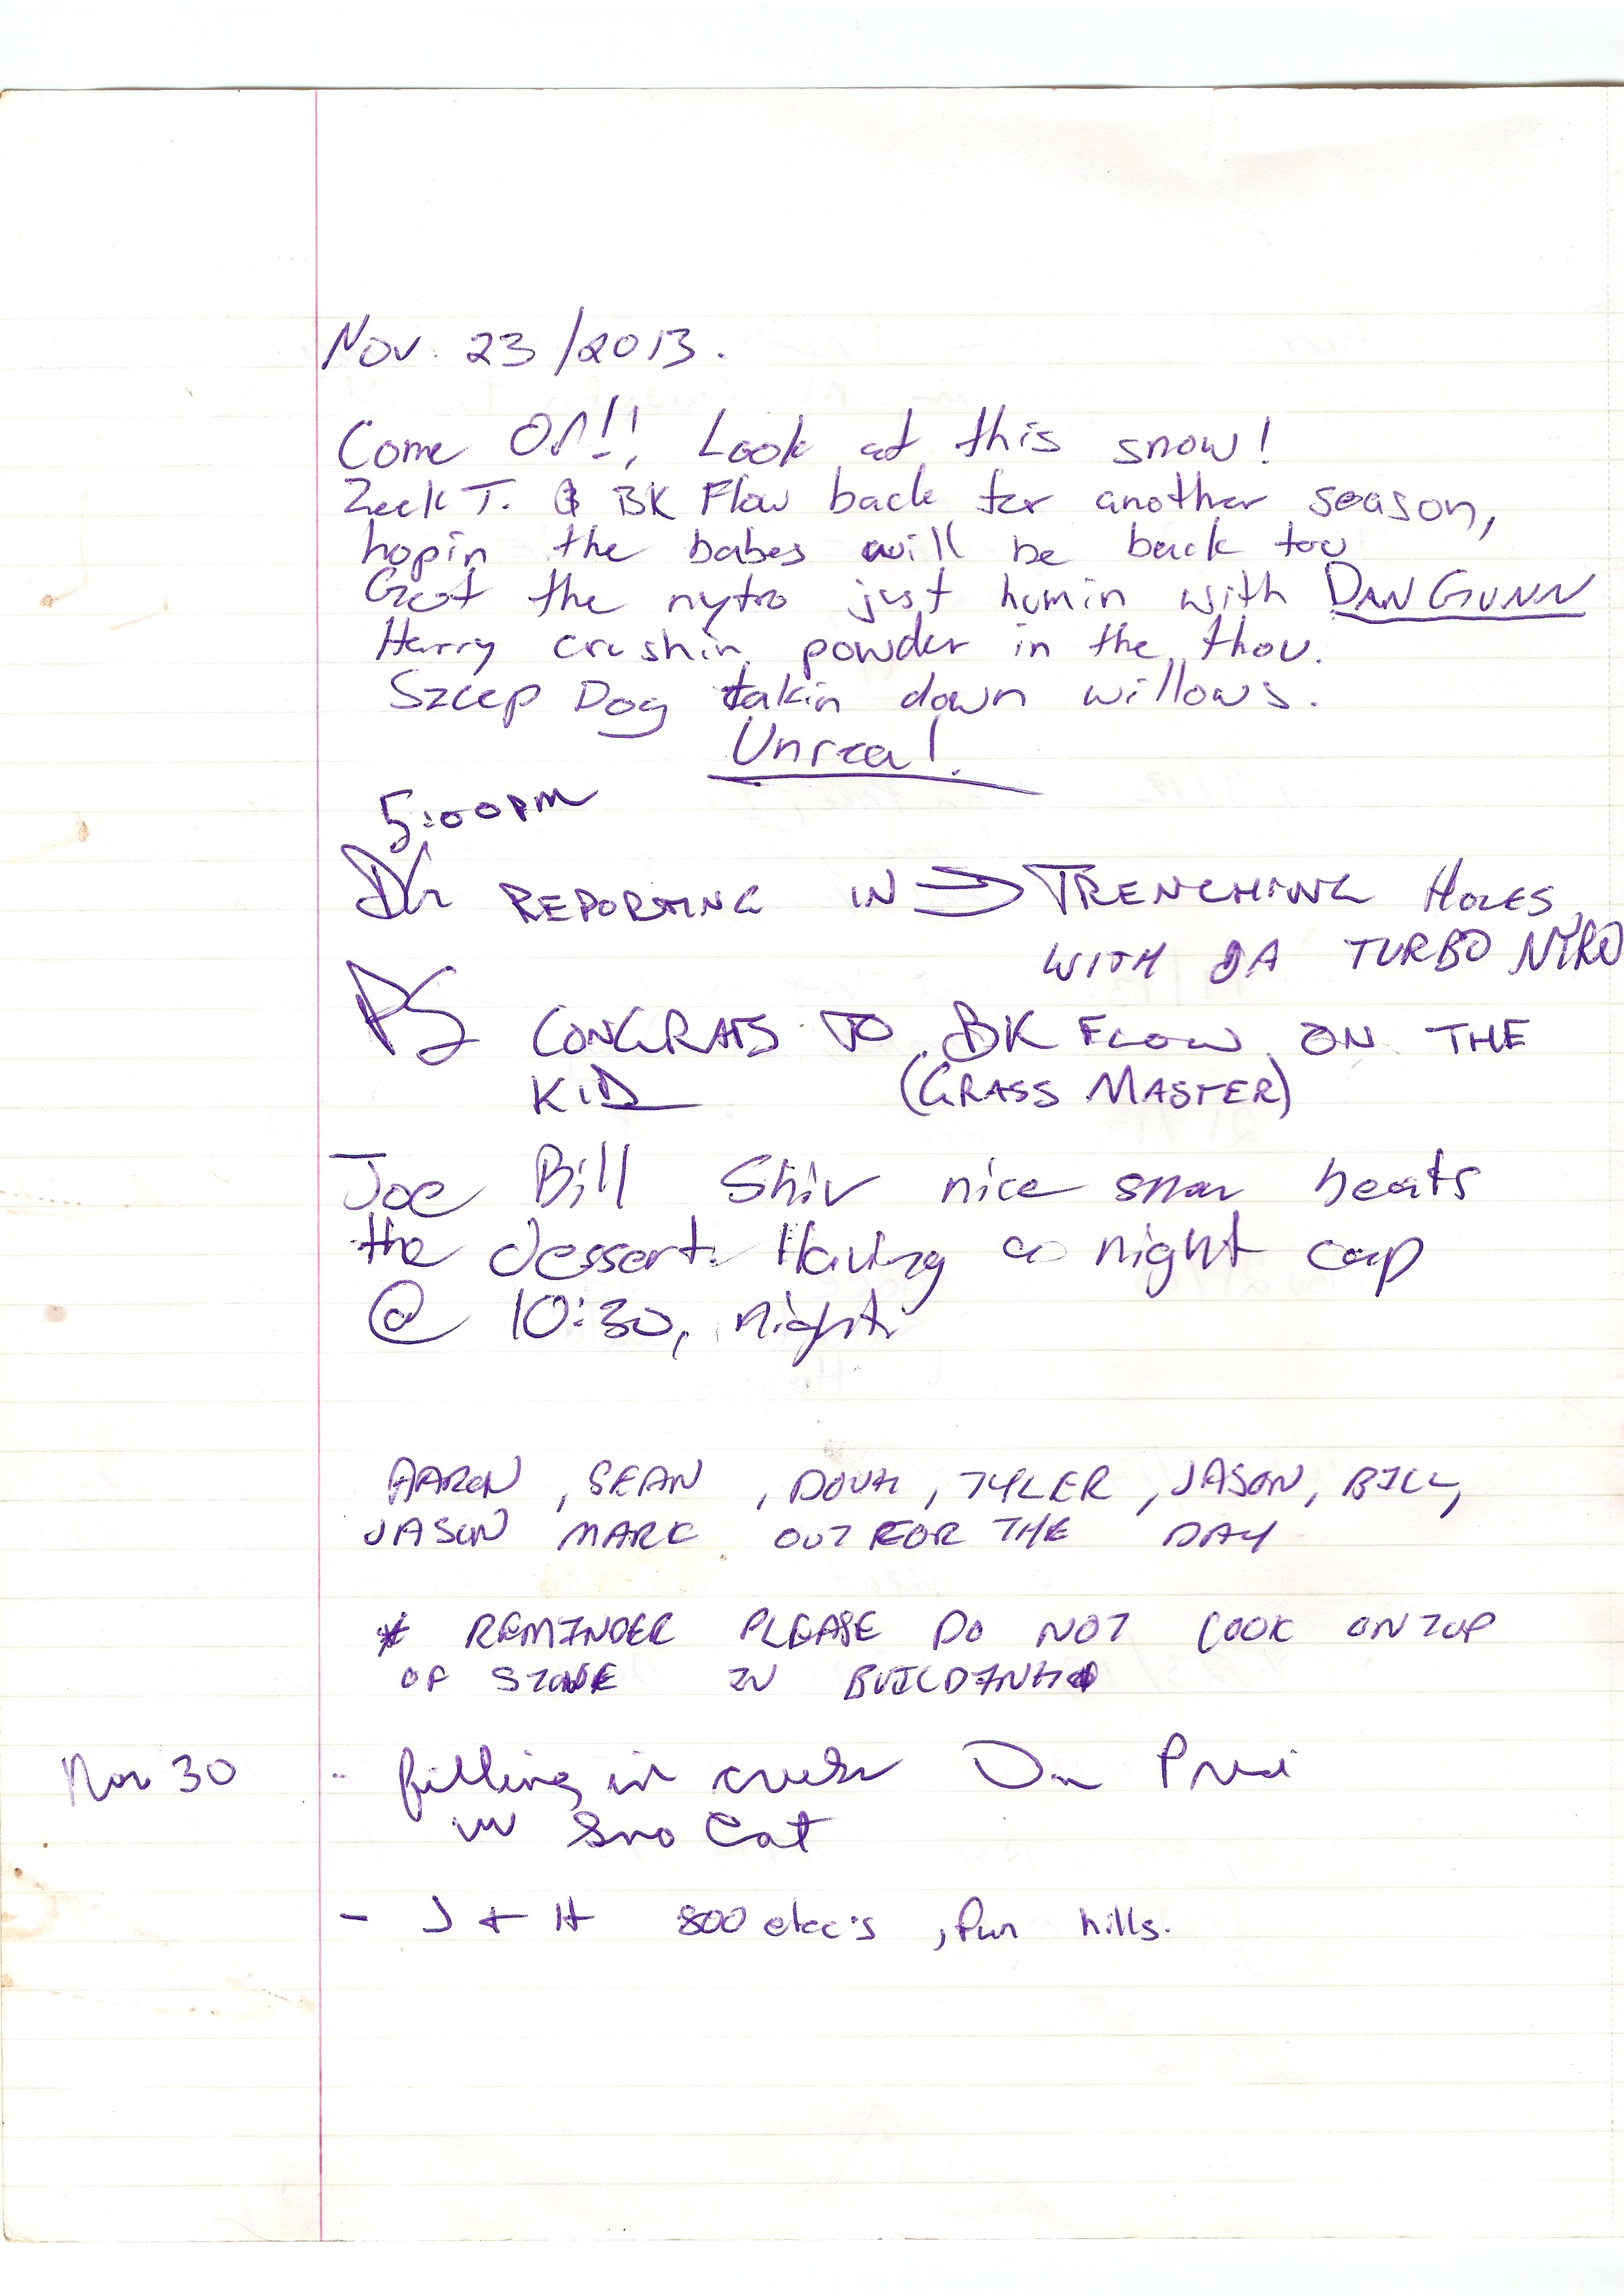 Nov. 23/2013.
Come On!! Look at this snow!
Zeek T. & BK Flow back for another season,
hopin the babes will be back too
Got the nytro just humin with DAN GUNN
Harry crushin powder in the thou.
Szcep Dog takin down willows.
Unreal.
5:00PM
DG REPORTING IN → TRENCHING HOLES
WITH DA TURBO NYRO
PS CONGRATS TO BK FLOW ON THE
KID (GRASS MASTER)
Joe Bill Shiv nice snow beats
the dessert. Having a night cap
@ 10:30, night
AARON, SEAN, DOUG, TYLER, JASON, BILL,
JASON MARK OUT FOR THE DAY
* REMINDER PLEASE DO NOT COOK ON TOP
OF STOVE IN BUILDING
Nov 30 - filling in creek
w Sno Cat
- J + H 800 etec's, fun hills.